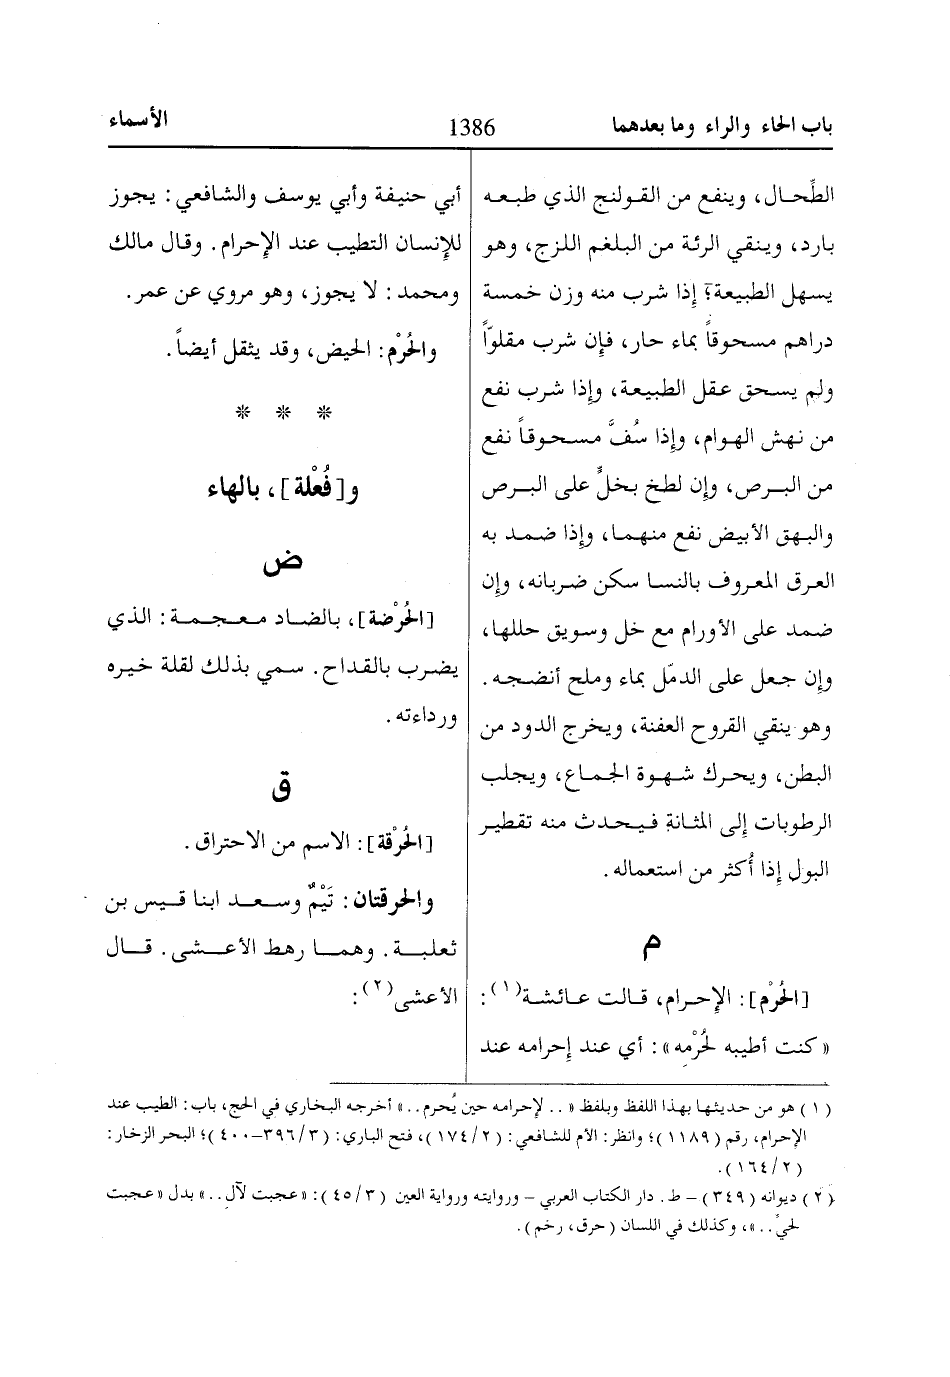 باب الحاء والراء وما بعدهما
1386
الأسماء
الطِّحال، وينفع من القولنج الذي طبعه
بارد، وينقي الرئة من البلغم اللزج، وهو
يسهل الطبيعة؟ إذا شرب منه وزن خمسة
دراهم مسحوقاً بماء حار، فإن شرب مقلوّاً
ولم يسحق عقل الطبيعة، وإذا شرب نفع
من نهش الهوام، وإذا سُفَّ مسحوقاً نفع
من البرص، وإن لطخ بخلٍّ على البرص
والبهق الأبيض نفع منهما، وإذا ضمد به
العرق المعروف بالنسا سكن ضربانه، وإن
ضمد على الأورام مع خل وسويق حللها،
وإن جعل على الدمّل بماء وملح أنضجه.
وهو ينقي القروح العفنة، ويخرج الدود من
البطن، ويحرك شهوة الجماع، ويجلب
الرطوبات إلى المثانة فيحدث منه تقطير
البول إذا أُكثر من استعماله.
م
[الحُرْم]: الإحرام، قالت عائشة(١):
«كنت أطيبه لحُرْمه»: أي عند إحرامه عند
أبي حنيفة وأبي يوسف والشافعي: يجوز
للإنسان التطيب عند الإحرام. وقال مالك
ومحمد: لا يجوز، وهو مروي عن عمر.
والحُرْم: الحيض، وقد يثقل أيضاً.
* * *
و[فُعْلة]، بالهاء
ض
[الحُرْضة]، بالضاد معجمة: الذي
يضرب بالقداح. سمي بذلك لقلة خيره
ورداءته.
ق
[الحُرْقة]: الاسم من الاحتراق.
والحرقتان: تَيْمٌ وسعد ابنا قيس بن
ثعلبة. وهما رهط الأعشى. قال
الأعشى(٢):
(١) هو من حديثها بهذا اللفظ وبلفظ «.. لإحرامه حين يُحرم..» أخرجه البخاري في الحج، باب: الطيب عند
الإحرام، رقم (١١٨٩)؛ وانظر: الأم للشافعي: (٢/١٧٤)، فتح الباري: (٣/٣٩٦–٤٠٠)؛ البحر الزخار:
(٢/١٦٤).
(٢) ديوانه (٣٤٩) – ط. دار الكتاب العربي – وروايته ورواية العين (٣/٤٥): «عجبت لآل..» بدل «عجبت
لحيٍّ..»، وكذلك في اللسان (حرق، رخم).